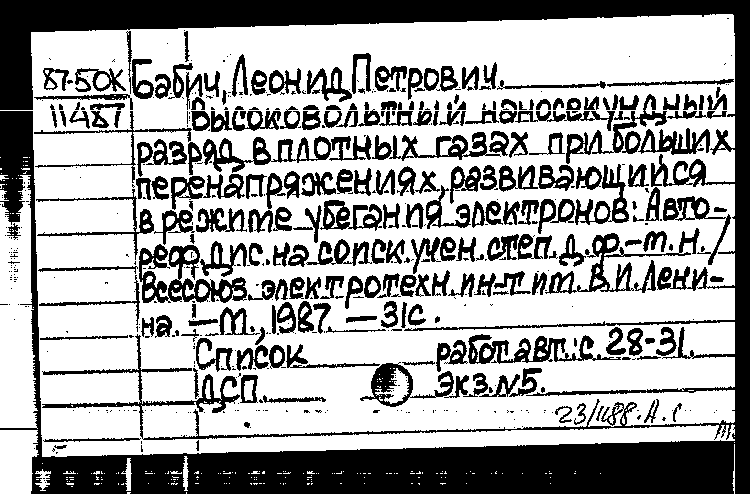 87-50К Бабич, Леонид Петрович.
11487 Высоковольтный наносекундный
разряд в плотных газах при больших
перенапряжениях, развивающийся
в режиме убегания электронов: Авто-
реф. дис. на соиск. учен. степ. д. ф.-м. н. /
Всесоюз. электротехн. ин-т им. В. И. Лени-
на. — М., 1987. — 31с.
Список работ авт.: с. 28-31.
ДСП. Экз. №5.
23/1188.А.с